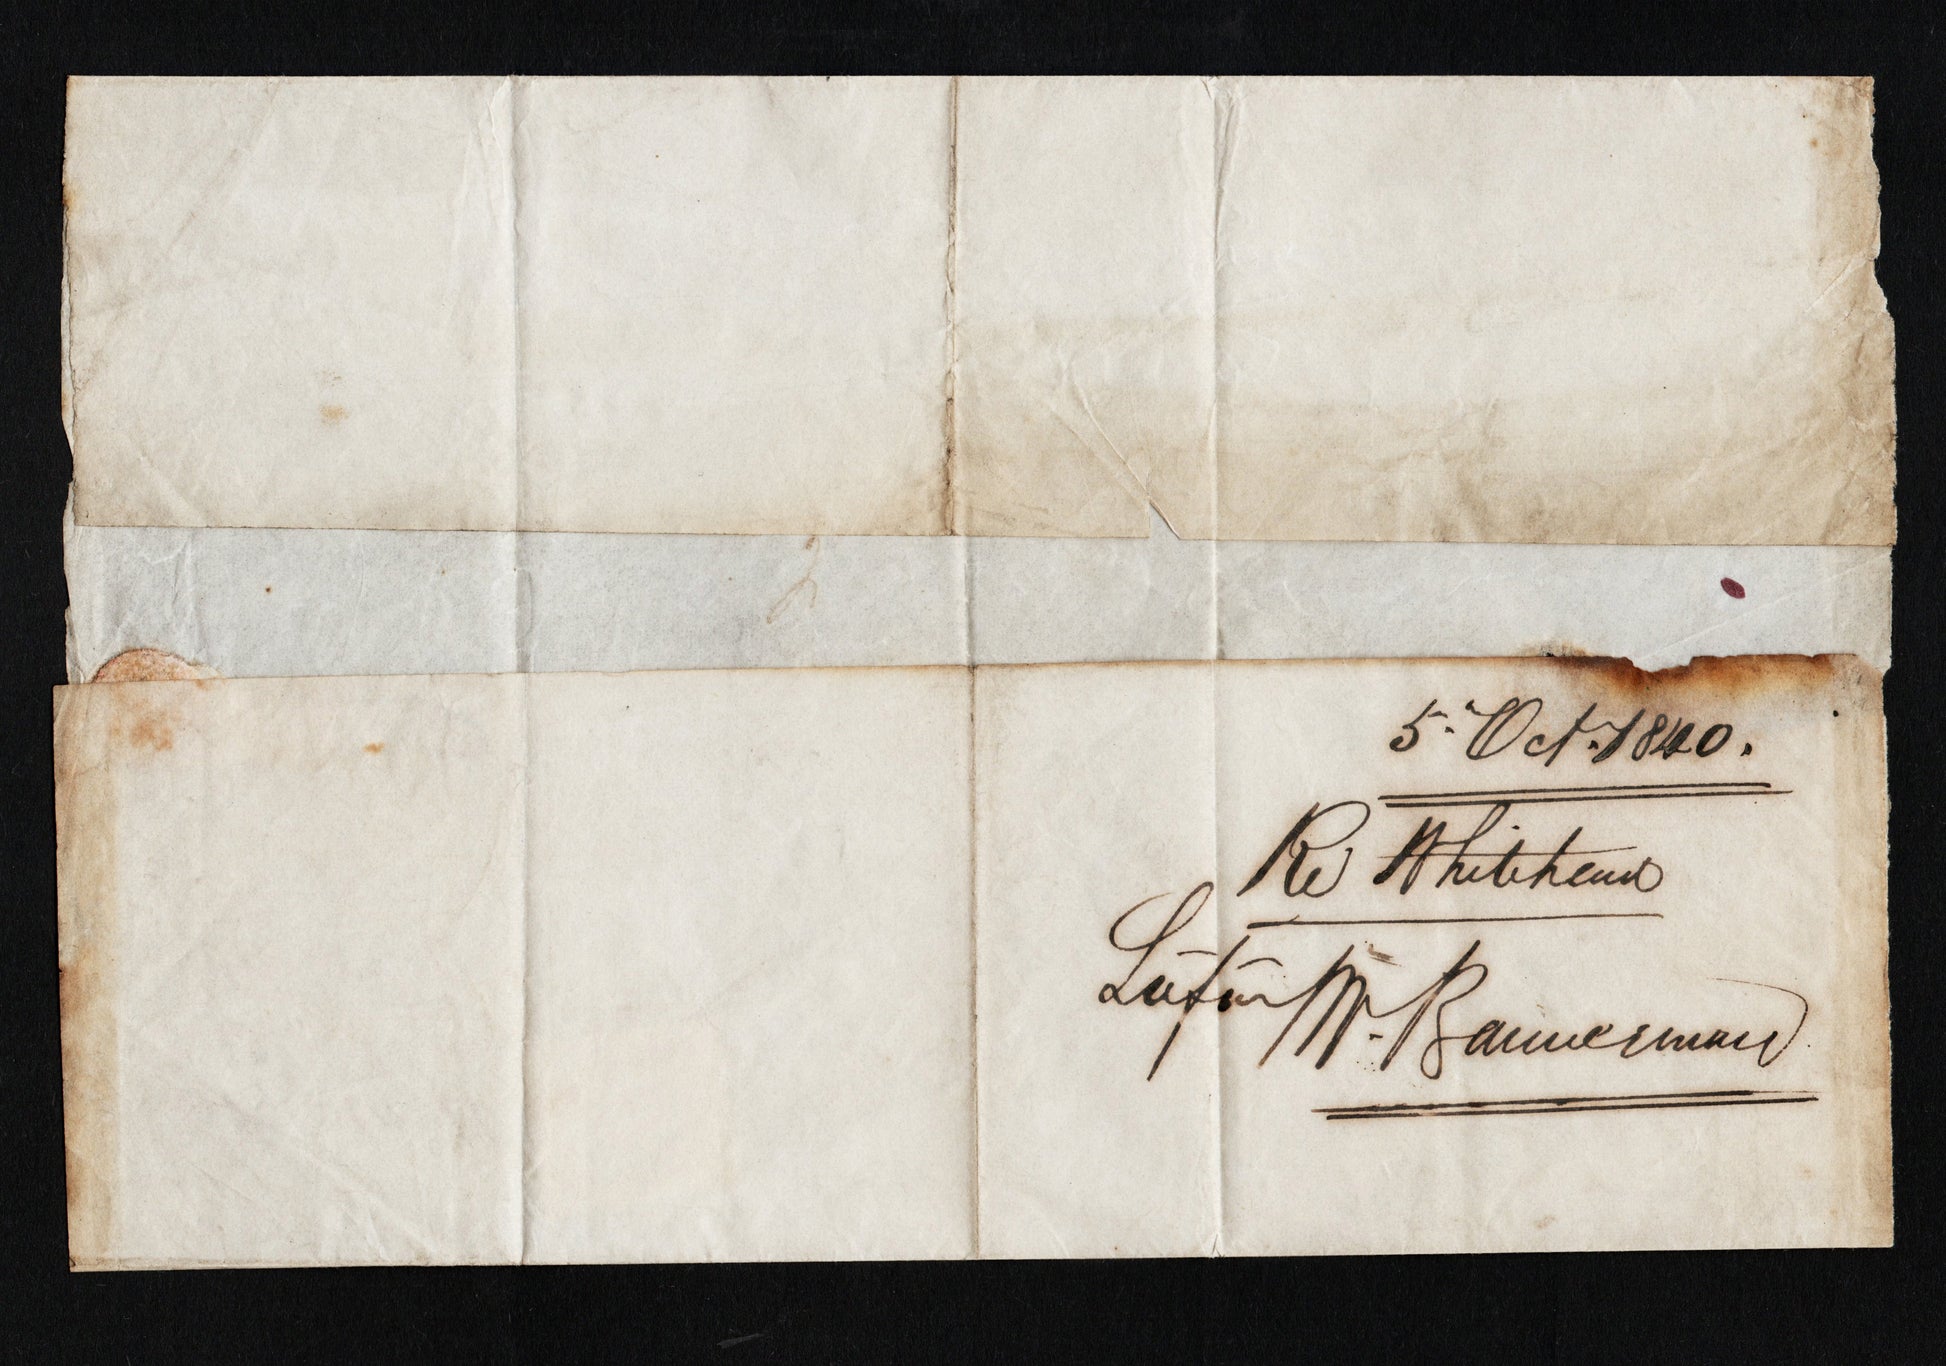 5. Oct. 1840.
Re Whitehead
Mr. Bannerman